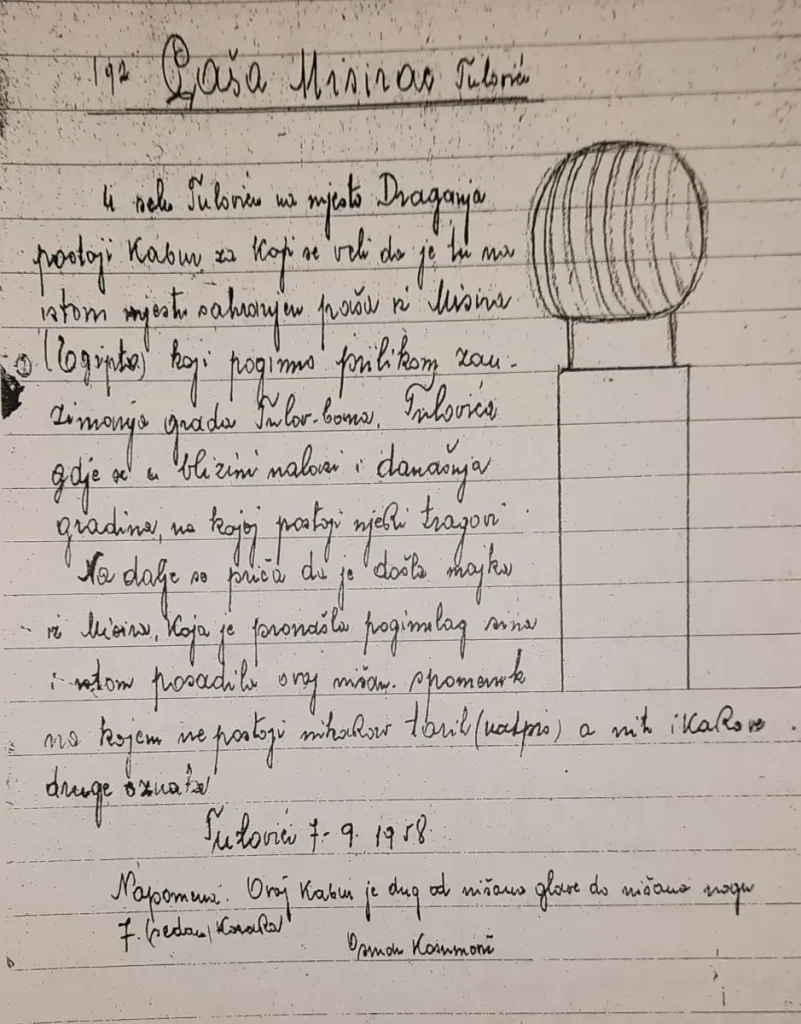 192 Paša Misirac Tulovići
U selu Tulovići na mjesto Draganja
postoji Kabur za koji se veli da je tu na
istom mjestu sahranjen paša iz Misira
(Egipta) koji poginuo prilikom zau-
zimanja grada Tulov-bana, Tulovića
gdje se u blizini nalazi i današnja
gradina, na kojoj postoji njeki tragovi
Na dalje se priča da je došla majka
iz Misira, koja je pronašla poginulag sina
i istom posadila ovaj nišan. spomenik
na kojem ne postoji nikakov tarih (natpis) a niti ikakove
druge oznake
Tulovići 7-9. 1958.
Napomena. Ovaj Kabur je dug od nišana glave do nišana nogu
7. (sedam) Koraka
Osman